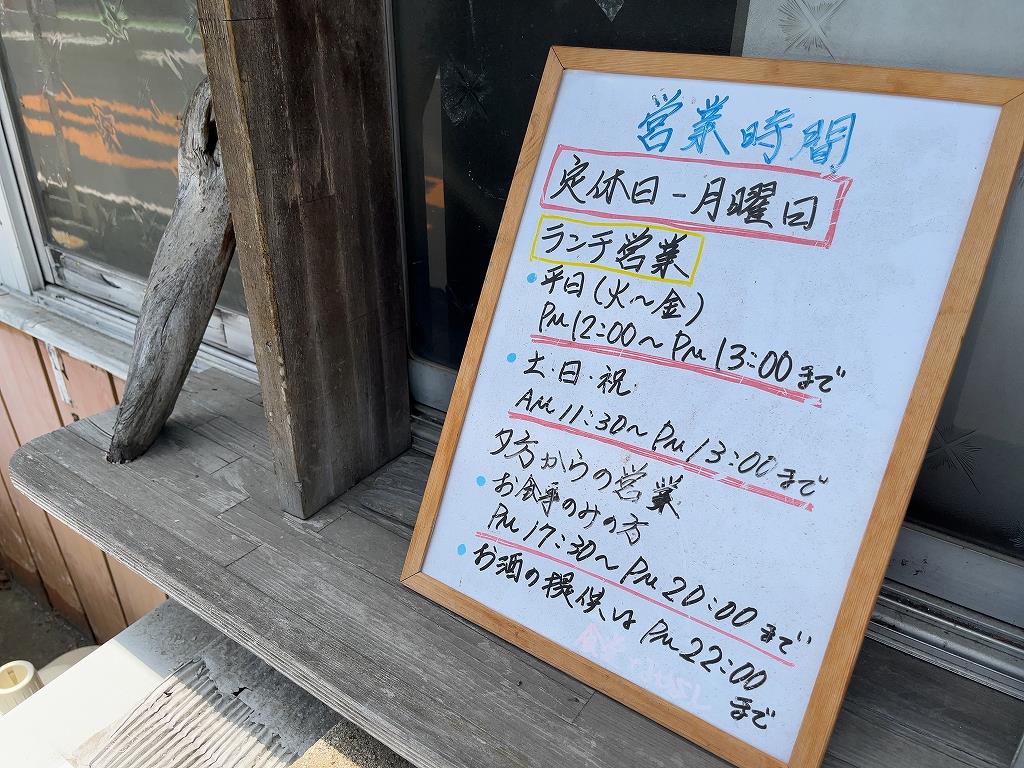 営業時間
定休日-月曜日
ランチ営業
・平日(火〜金)
PM12:00〜PM13:00まで
・土・日・祝
AM11:30〜PM13:00まで
夕方からの営業
・お食事のみの方
PM17:30〜PM20:00まで
・お酒の提供はPM22:00
まで